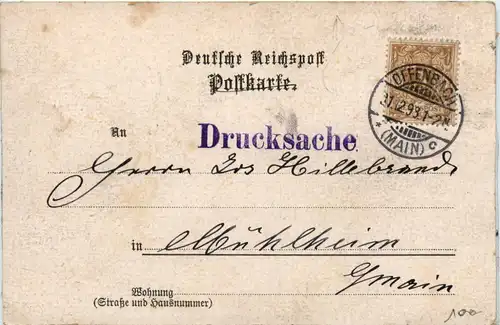 Deutsche Reichspost
Postkarte.
OFFENBACH
31.12.93.1-2N
* (MAIN) c
An
Drucksache
Herrn Jos Hillebrand
in Mühlheim
Wohnung
(Straße und Hausnummer)
a/main
100